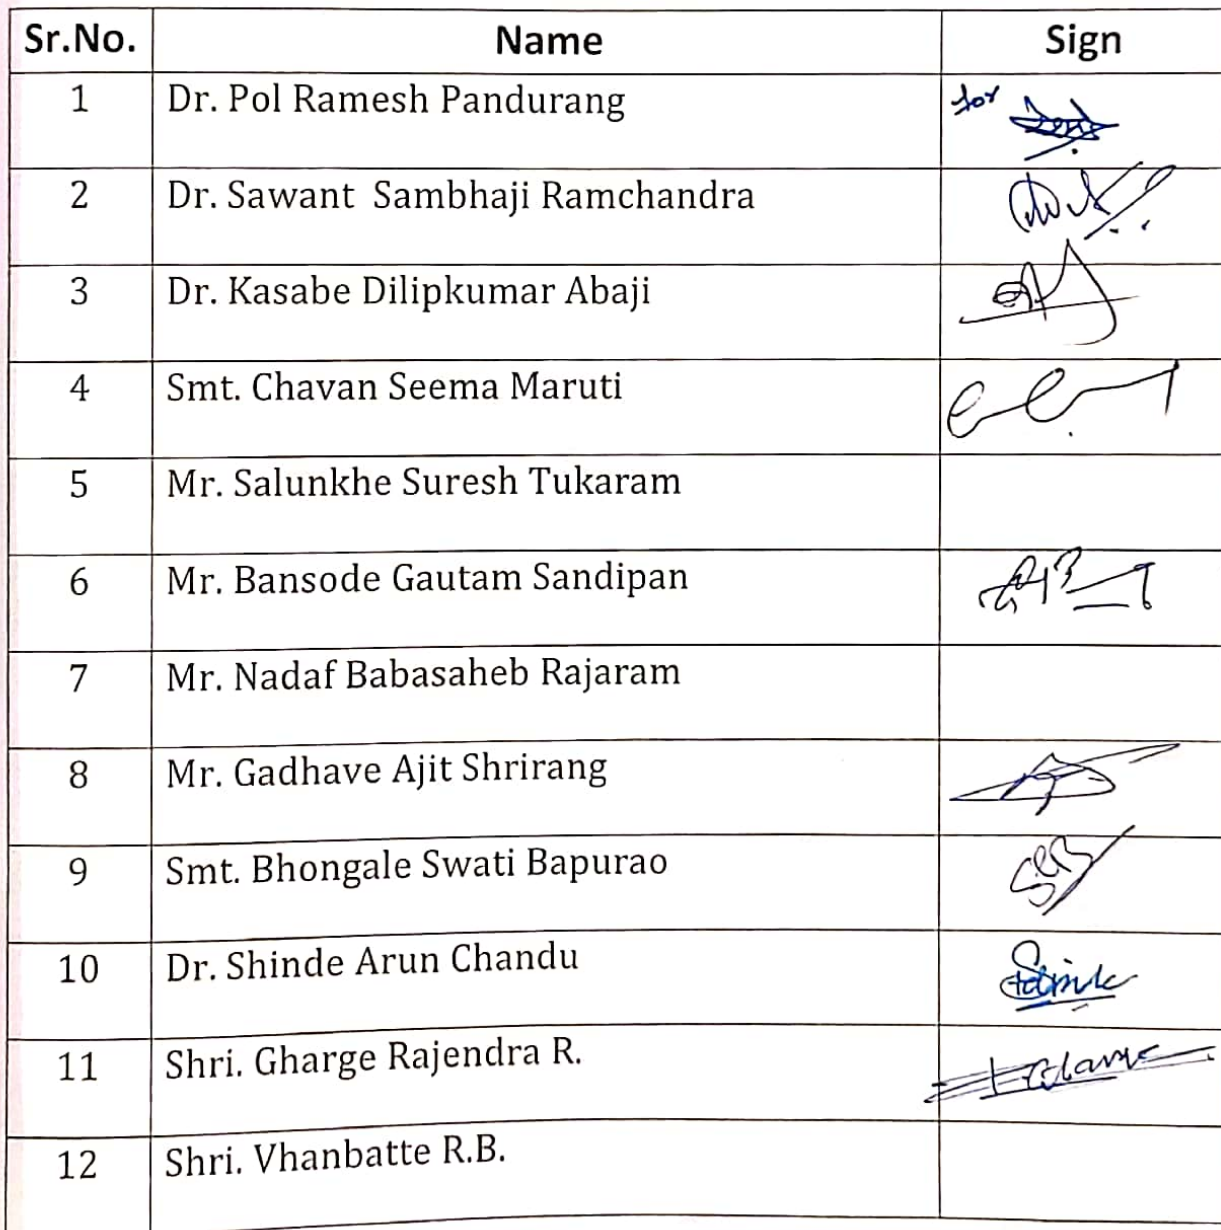 Sr.No. Name Sign
1 Dr. Pol Ramesh Pandurang for
2 Dr. Sawant Sambhaji Ramchandra
3 Dr. Kasabe Dilipkumar Abaji
4 Smt. Chavan Seema Maruti
5 Mr. Salunkhe Suresh Tukaram
6 Mr. Bansode Gautam Sandipan
7 Mr. Nadaf Babasaheb Rajaram
8 Mr. Gadhave Ajit Shrirang
9 Smt. Bhongale Swati Bapurao
10 Dr. Shinde Arun Chandu
11 Shri. Gharge Rajendra R.
12 Shri. Vhanbatte R.B.